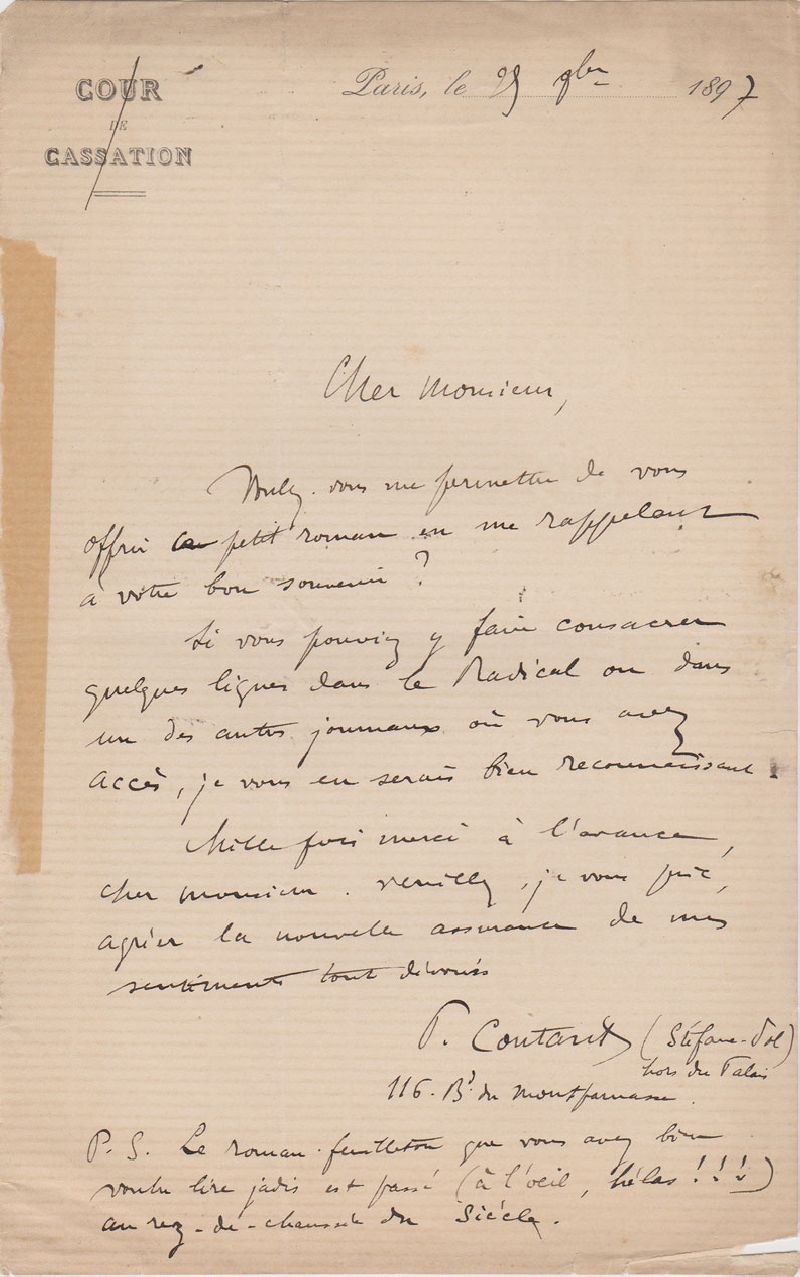 COUR
DE
CASSATION
Paris, le 25 9bre 1897
Cher Monsieur,
Voulez-vous me permettre de vous
offrir ce petit roman en me rappelant
à votre bon souvenir ?
Si vous pouviez y faire consacrer
quelques lignes dans le Radical ou dans
un des autres journaux où vous avez
accès, je vous en serais bien reconnaissant
Mille fois merci à l'avance,
cher monsieur. Veuillez, je vous prie,
agréer la nouvelle assurance de mes
sentiments tout dévoués
P. Coutant (Stéfane-Pol)
hors du Palais
116. Bd du Montparnasse.
P. S. Le roman-feuilleton que vous avez bien
voulu lire jadis est passé (à l'oeil, hélas !!!)
au rez-de-chaussée du Siècle.